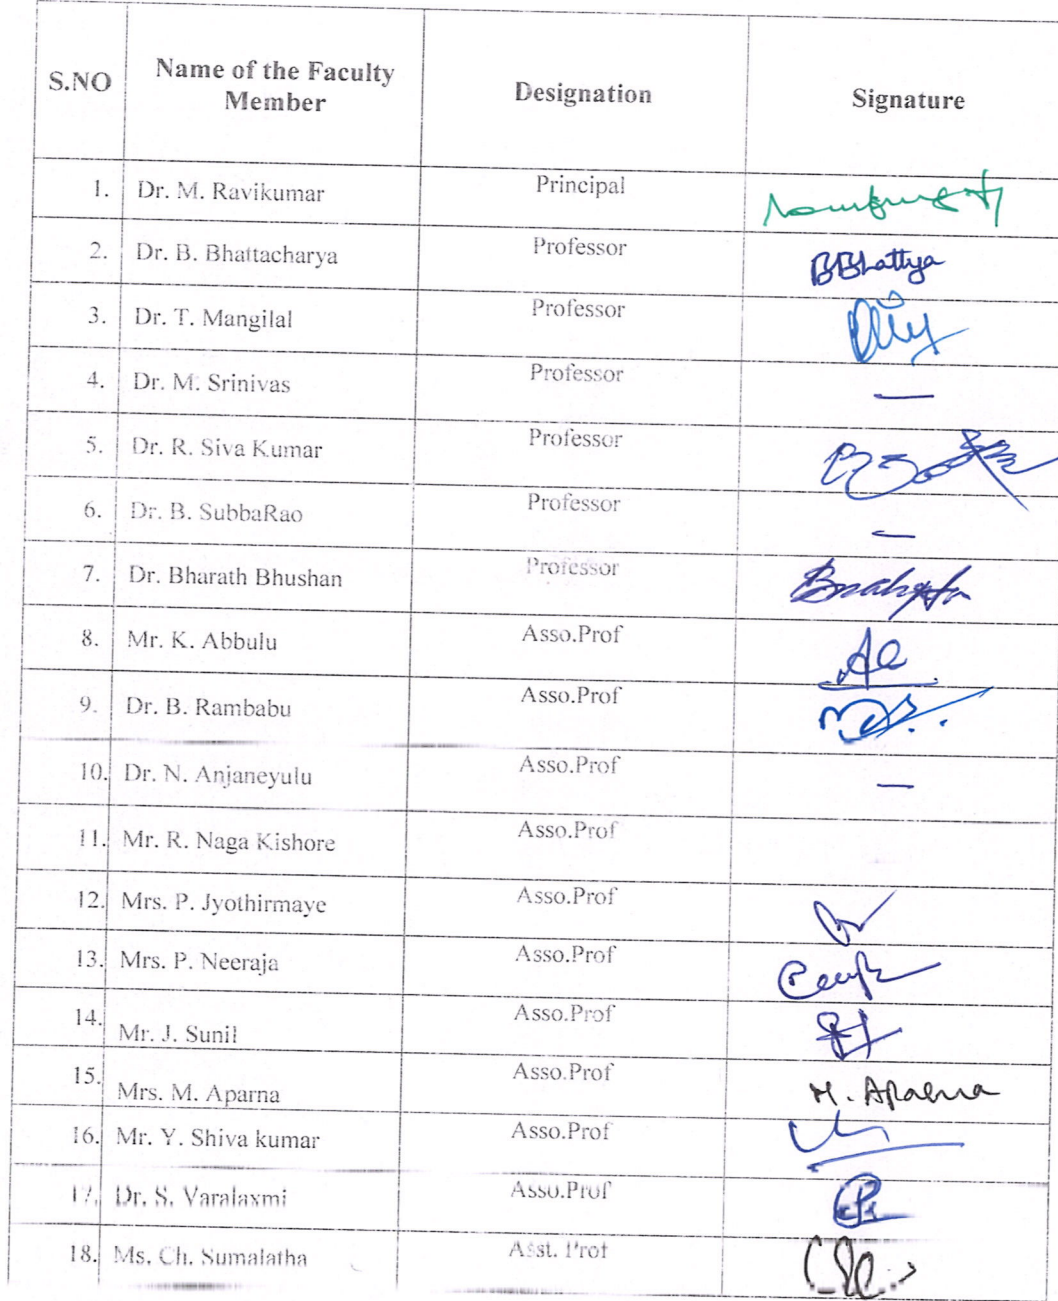 S.NO Name of the Faculty Member Designation Signature
1. Dr. M. Ravikumar Principal
2. Dr. B. Bhattacharya Professor BBhattya
3. Dr. T. Mangilal Professor
4. Dr. M. Srinivas Professor —
5. Dr. R. Siva Kumar Professor
6. Dr. B. SubbaRao Professor —
7. Dr. Bharath Bhushan Professor
8. Mr. K. Abbulu Asso.Prof
9. Dr. B. Rambabu Asso.Prof
10. Dr. N. Anjaneyulu Asso.Prof —
11. Mr. R. Naga Kishore Asso.Prof
12. Mrs. P. Jyothirmaye Asso.Prof
13. Mrs. P. Neeraja Asso.Prof
14. Mr. J. Sunil Asso.Prof
15. Mrs. M. Aparna Asso.Prof M. Aparna
16. Mr. Y. Shiva kumar Asso.Prof
17. Dr. S. Varalaxmi Asso.Prof
18. Ms. Ch. Sumalatha Asst. Prof